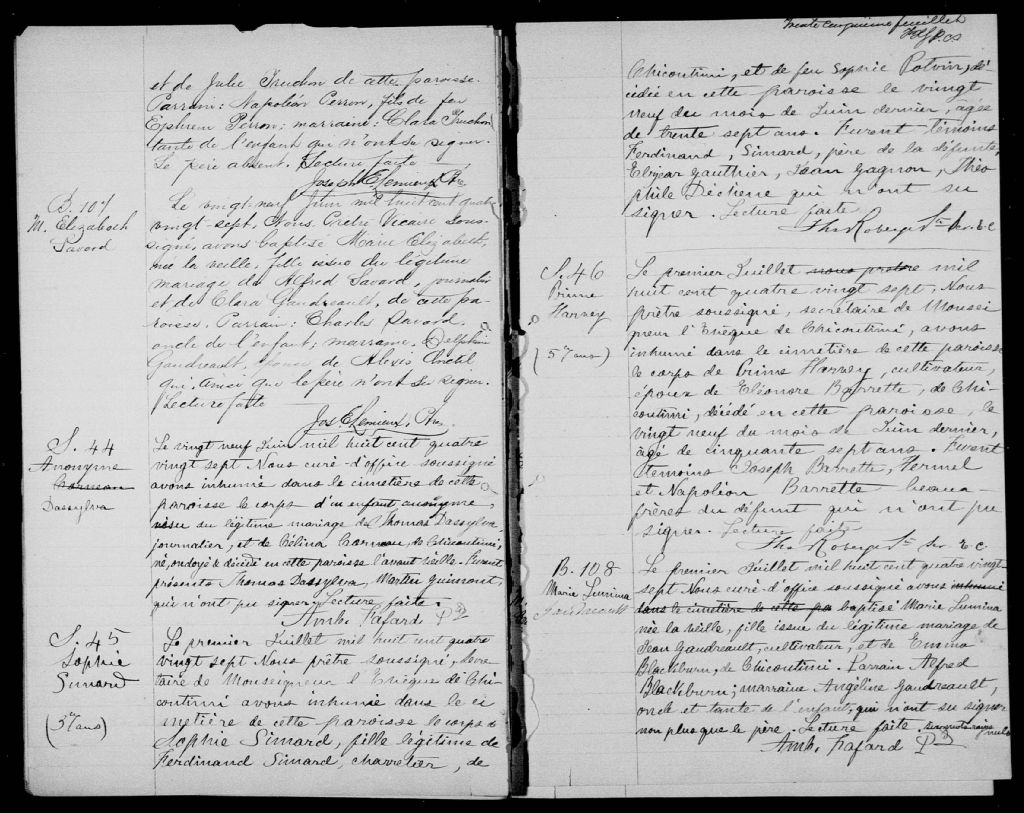 et de Julie Truchon de cette paroisse.
Parrain: Napoléon Perron, fils de feu
Ephrem Perron; marraine: Clara Truchon
tante de l'enfant qui n'ont su signer.
Le père absent. Lecture faite —
Joseph E Lemieux Ptre
B. 107
M. Elizabeth
Savard
Le vingt-neuf Juin mil huit cent quatre
vingt-sept, Nous Prêtre Vicaire sous-
signé, avons baptisé Marie Elizabeth,
née la veille, fille issue du légitime
mariage de Alfred Savard, journalier
et de Clara Gaudreault, de cette pa-
roisse. Parrain: Charles Savard,
oncle de l'enfant; marraine: Delphine
Gaudreault, épouse de Alexis Cretel
qui, ainsi que le père n'ont su signer.
Lecture faite —
Jos E Lemieux, Ptre
S. 44
Anonyme
Dassylva
Le vingt neuf Juin mil huit cent quatre
vingt sept Nous curé d'office soussigné
avons inhumé dans le cimetière de cette
paroisse le corps d'un enfant anonyme,
issu du légitime mariage de Thomas Dassylva
journalier, et de Célina de Chicoutimi,
né, ondoyé & décédé en cette paroisse l'avant veille. Furent
présents Thomas Dassylva, Martin Guimont,
qui n'ont pu signer. Lecture faite.
Amb. Fafard
S. 45
Sophie
Simard
(37 ans)
Le premier Juillet mil huit cent quatre
vingt sept Nous prêtre soussigné, Secré-
taire de Monseigneur l'Evêque de Chi-
coutimi avons inhumé dans le ci
metière de cette paroisse le corps de
Sophie Simard, fille légitime de
Ferdinand Simard, charretier, de
trente cinquième feuillet
Chicoutimi, et de feu Sophie Potvin, dé-
cédée en cette paroisse le vingt
neuf du mois de Juin dernier, agée
de trente sept ans. Furent témoins
Ferdinand, Simard, père de la défunte,
Elzear Gauthier, Jean Gagnon, Théo
phile Déchene qui n'ont su
signer. Lecture faite
Ths Roberge Ptre Sec. E. C
S. 46
Prime
Harvey
(57 ans)
Le premier Juillet nous pretre mil
huit cent quatre vingt sept, Nous
prêtre soussigné, secrétaire de Monsei
gneur l'Evêque de Chicoutimi, avons
inhumé dans le cimetière de cette paroisse
le corps de Prime Harvey, cultivateur,
époux de Eléonore Barrette, de Chi-
coutimi, décédé en cette paroisse, le
vingt neuf du mois de Juin dernier,
agé de cinquante sept ans. Furent
témoins Joseph Barrette, Hermel
et Napoléon Barrette beaux-
frères du défunt qui n'ont pu
signer. Lecture faite
Ths Roberge Ptre Sec. E. C.
B. 108
Marie Lumina
Gaudreault
Le premier Juillet mil huit cent quatre vingt-
sept Nous curé d'office soussigné avons inhumé
dans le cimetière de cette pa baptisé Marie Lumina
née la veille, fille issue du légitime mariage de
Jean Gaudreault, cultivateur, et de Emma
Blackburn, de Chicoutimi. Parrain Alfred
Blackburn; marraine Angéline Gaudreault,
oncle et tante de l'enfant, qui n'ont su signer
non plus que le père. Lecture faite. rayés nuls
Amb. Fafard